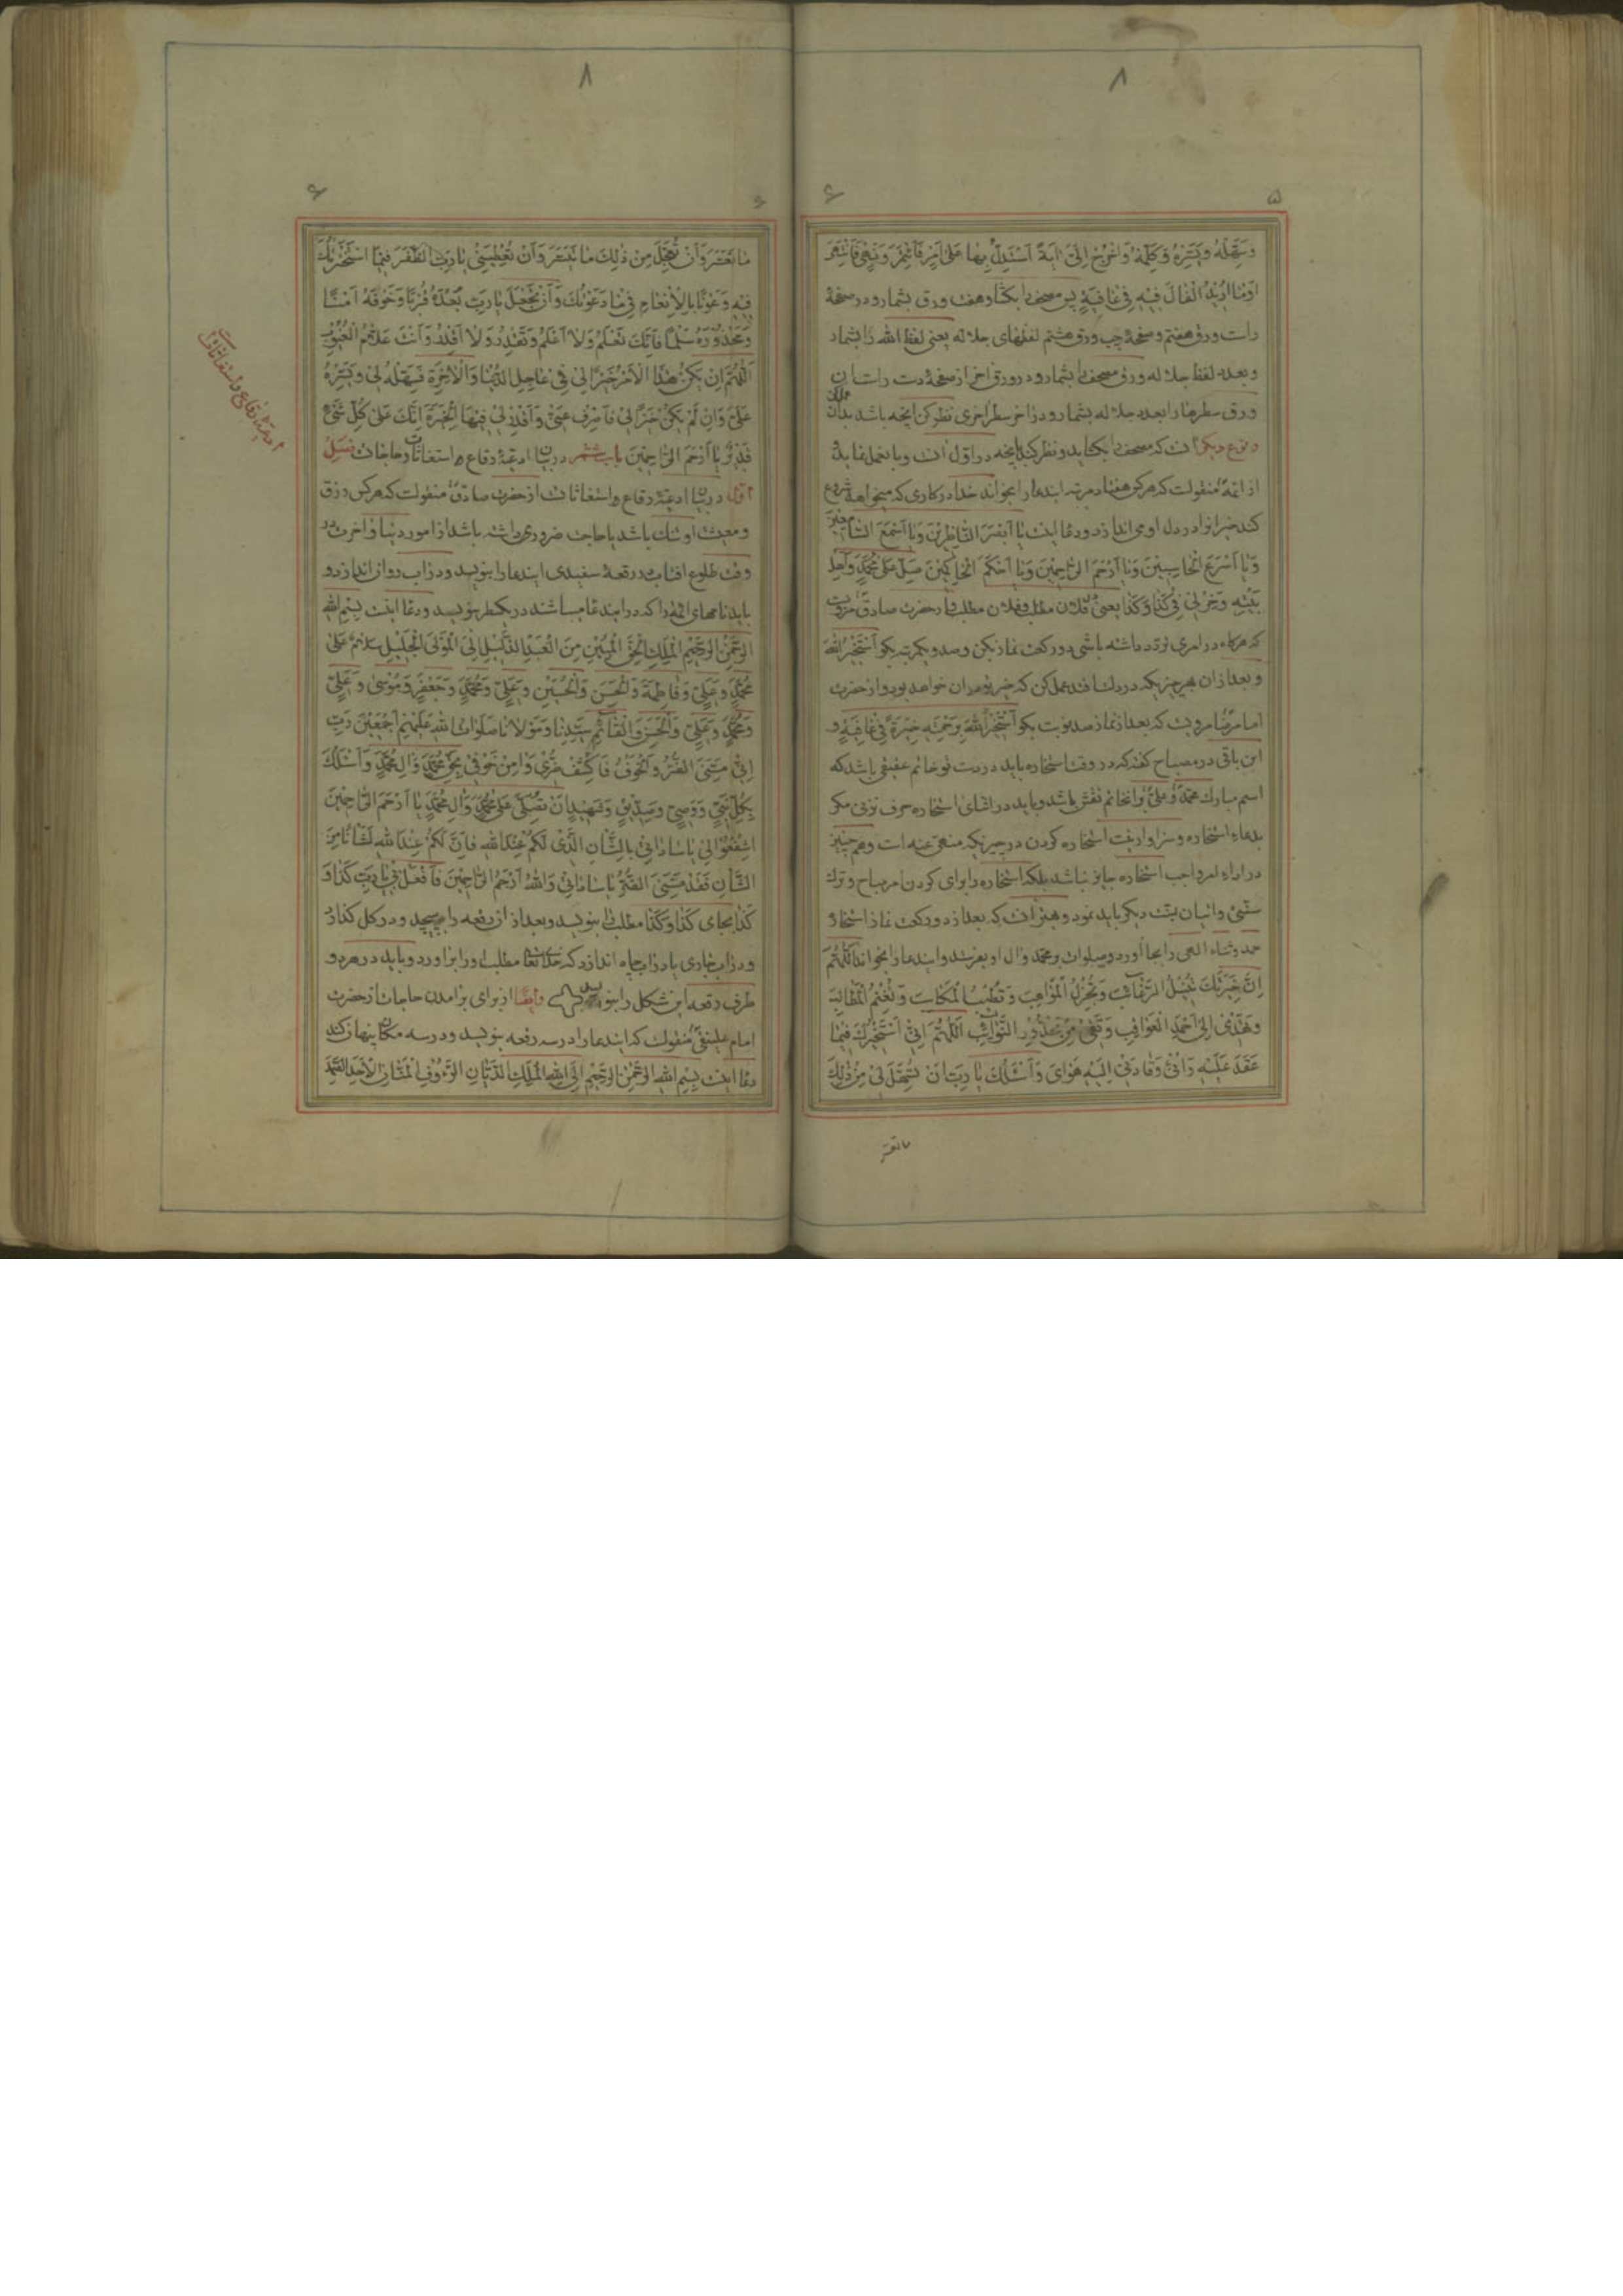 ۸
۵
۶
وَسَهِّلْهُ وَيَسِّرْهُ وَكَمِّلْهُ وَاَخْرِجْ اِلَىَّ اٰيَةً اَسْتَدِلُّ بِهٰا عَلىٰ اَمْرٍ فَاَئْتَمِرَ وَنَهْىٍ فَاَنْتَهِىَ
اوما اريد الفال فيه فى عافية پس مصحف را بكشا و هفت ورق بشمارد و در صفحهٔ
راست ورق هفتم و صفحهٔ چپ ورق هشتم لفظهاى جلاله يعنى لفظ الله را بشمارد
و بعدد لفظ جلاله ورق مصحف را بشمارد و در ورق اخر از صفحهٔ دست راست ان
ورق سطرها را بعدد جلاله بشمارد و در اخر سطر اخرى نظر كن انچه باشد بدان عمل كن
و نوع ديكر انست كه مصحف را بكشايد و نظر كند بانچه در اول انست و با بعمل نمايد
از ائمه منقولست كه هر كس هفتاد مرتبه ايندعا را بخواند خدا در كارى كه ميخواهد شروع
كند خير او را در دل او مى اندازد و دعا اينست يٰا اَبْصَرَ النّٰاظِرينَ وَيٰا اَسْمَعَ السّٰامِعينَ
وَيٰا اَسْرَعَ الْحٰاسِبينَ وَيٰا اَرْحَمَ الرّٰاحِمينَ وَيٰا اَحْكَمَ الْحٰاكِمينَ صَلِّ عَلىٰ مُحَمَّدٍ وَاَهْلِ
بَيْتِهِ وَخِرْ لى فى كَذٰا وَكَذٰا يعنى فلان مطلب و فلان مطلب و از حضرت صادق مرويست
كه هركاه در امرى تردد داشته باشى دو ركعت نماز بكن و صد و يكمرتبه بكو اَسْتَخيرُ اللّٰهَ
و بعد از ان هر چيز يكه در دلت افتد عمل كن كه خير تو در ان خواهد بود و از حضرت
امام رضا مرويست كه بعد از نماز صد نوبت بكو اَسْتَخيرُ اللّٰهَ بِرَحْمَتِهِ خِيَرَةً فى عٰافِيَةٍ و
ابن باقى در مصباح كفته كه در وقت استخاره بايد در دست تو خاتم عقيقى باشد كه
اسم مبارك محمد و على بر انخاتم نقش باشد و بايد در اثناى استخاره حرف نزنى مكر
بدعاء استخاره و سزاوار نيست استخاره كردن در چيزيكه منهى عنه است و همچنين
در اداء امر واجب استخاره جايز نباشد بلكه استخاره را براى كردن امر مباح و ترك
سنّتى و اتيان بسنت ديكر بايد نمود و بهتر انست كه بعد از دو ركعت نماز استخاره
حمد و ثناء الهى را بجا آورد و صلوات بر محمد و ال او بفرستد و ايندعا را بخواند اَللّٰهُمَّ
اِنَّ خِيَرَتَكَ تُنيلُ الرَّغٰائِبَ وَتُجْزِلُ الْمَوٰاهِبَ وَتُطَيِّبُ الْمَكٰاسِبَ وَتُغْنِمُ الْمَطٰالِبَ
وَتَهْدى اِلىٰ اَحْمَدِ الْعَوٰاقِبِ وَتَقى مِنْ مَحْذُورِ النَّوٰائِبِ اَللّٰهُمَّ اِنّى اَسْتَخيرُكَ فيمٰا
عَقَدَ عَلَيْهِ رَاْيى وَقٰادَنى اِلَيْهِ هَوٰاىَ وَاَسْئَلُكَ يٰا رَبِّ اَنْ تُسَهِّلَ لى مِنْ ذٰلِكَ
ما تعسّر
۸
۶
۶
مٰا تَعَسَّرَ وَاَنْ تُعَجِّلَ مِنْ ذٰلِكَ مٰا تَيَسَّرَ وَاَنْ تُعْطِيَنى يٰا رَبِّ الظَّفَرَ فيمٰا اسْتَخَرْتُكَ
فيهِ وَعَوْنًا بِالْاِنْعٰامِ فيمٰا دَعَوْتُكَ وَاَنْ تَجْعَلَ يٰا رَبِّ بُعْدَهُ قُرْبًا وَخَوْفَهُ اَمْنًا
وَمَحْذُورَهُ سِلْمًا فَاِنَّكَ تَعْلَمُ وَلٰا اَعْلَمُ وَتَقْدِرُ وَلٰا اَقْدِرُ وَاَنْتَ عَلّٰامُ الْغُيُوبِ
اَللّٰهُمَّ اِنْ يَكُنْ هٰذَا الْاَمْرُ خَيْرًا لى فى عٰاجِلِ الدُّنْيٰا وَالْاٰخِرَةِ فَسَهِّلْهُ لى وَيَسِّرْهُ
عَلَىَّ وَاِنْ لَمْ يَكُنْ خَيْرًا لى فَاصْرِفْ عَنّى وَاقْدِرْ لى فيهَا الْخِيَرَةَ اِنَّكَ عَلىٰ كُلِّ شَىْءٍ
قَديرٌ يٰا اَرْحَمَ الرّٰاحِمينَ باب ششم در بيان ادعيهٔ رقاع و استغاثات و حاجات فصل
اول در بيان ادعيهٔ رقاع و استغاثات از حضرت صادق منقولست كه هر كس رزق
و معيشت او تنك باشد يا حاجت ضرورى داشته باشد از امور دنيا و اخرت در
وقت طلوع افتاب در رقعهٔ سفيدى ايندعا را بنويسد و در اب روان اندازد و
بايد نامهاى ائمه را كه در ايندعا ميباشند در يكسطر بنويسد و دعا اينست بِسْمِ اللّٰهِ
الرَّحْمٰنِ الرَّحيمِ الْمَلِكِ الْحَقِّ الْمُبينِ مِنَ الْعَبْدِ الذَّليلِ اِلَى الْمَوْلَى الْجَليلِ سَلٰامٌ عَلىٰ
مُحَمَّدٍ وَعَلِىٍّ وَفٰاطِمَةَ وَالْحَسَنِ وَالْحُسَيْنِ وَعَلِىٍّ وَمُحَمَّدٍ وَجَعْفَرٍ وَمُوسىٰ وَعَلِىٍّ
وَمُحَمَّدٍ وَعَلِىٍّ وَالْحَسَنِ وَالْقٰائِمِ سَيِّدِنٰا وَمَوْلٰانٰا صَلَوٰاتُ اللّٰهِ عَلَيْهِمْ اَجْمَعينَ رَبِّ
اِنّى مَسَّنِىَ الضُّرُّ وَالْخَوْفُ فَاكْشِفْ ضُرّى وَاٰمِنْ خَوْفى بِحَقِّ مُحَمَّدٍ وَاٰلِ مُحَمَّدٍ وَاَسْئَلُكَ
بِكُلِّ نَبِىٍّ وَوَصِىٍّ وَصِدّيقٍ وَشَهيدٍ اَنْ تُصَلِّىَ عَلىٰ مُحَمَّدٍ وَاٰلِ مُحَمَّدٍ يٰا اَرْحَمَ الرّٰاحِمينَ
اِشْفَعُوا لى يٰا سٰادٰاتى بِالشَّاْنِ الَّذى لَكُمْ عِنْدَ اللّٰهِ فَاِنَّ لَكُمْ عِنْدَ اللّٰهِ لَشَاْنًا مِنَ
الشَّاْنِ فَقَدْ مَسَّنِىَ الضُّرُّ يٰا سٰادٰاتى وَاللّٰهُ اَرْحَمُ الرّٰاحِمينَ فَافْعَلْ بى يٰا رَبِّ كَذٰا وَ
كَذٰا بجاى كَذٰا وَكَذٰا مطلب را بنويسد و بعد از ان رقعه را بپيچد و در كل كذارد
و در اب جارى يا در اب چاه اندازد كه خدايتعالى مطلب او را براورد و بايد در هر دو
طرف رقعه اين شكل را بنويسد وايضًا از براى برامدن حاجات از حضرت
امام علينقى منقولست كه ايندعا را در سه رقعه بنويسد و در سه مكان پنهان كند
دعا اينست بِسْمِ اللّٰهِ الرَّحْمٰنِ الرَّحيمِ اِلَى اللّٰهِ الْمَلِكِ الدَّيّٰانِ الرَّؤُفِ الْمَنّٰانِ الْاَحَدِ الصَّمَدِ
ادعيهٔ رقاع و استغاثات